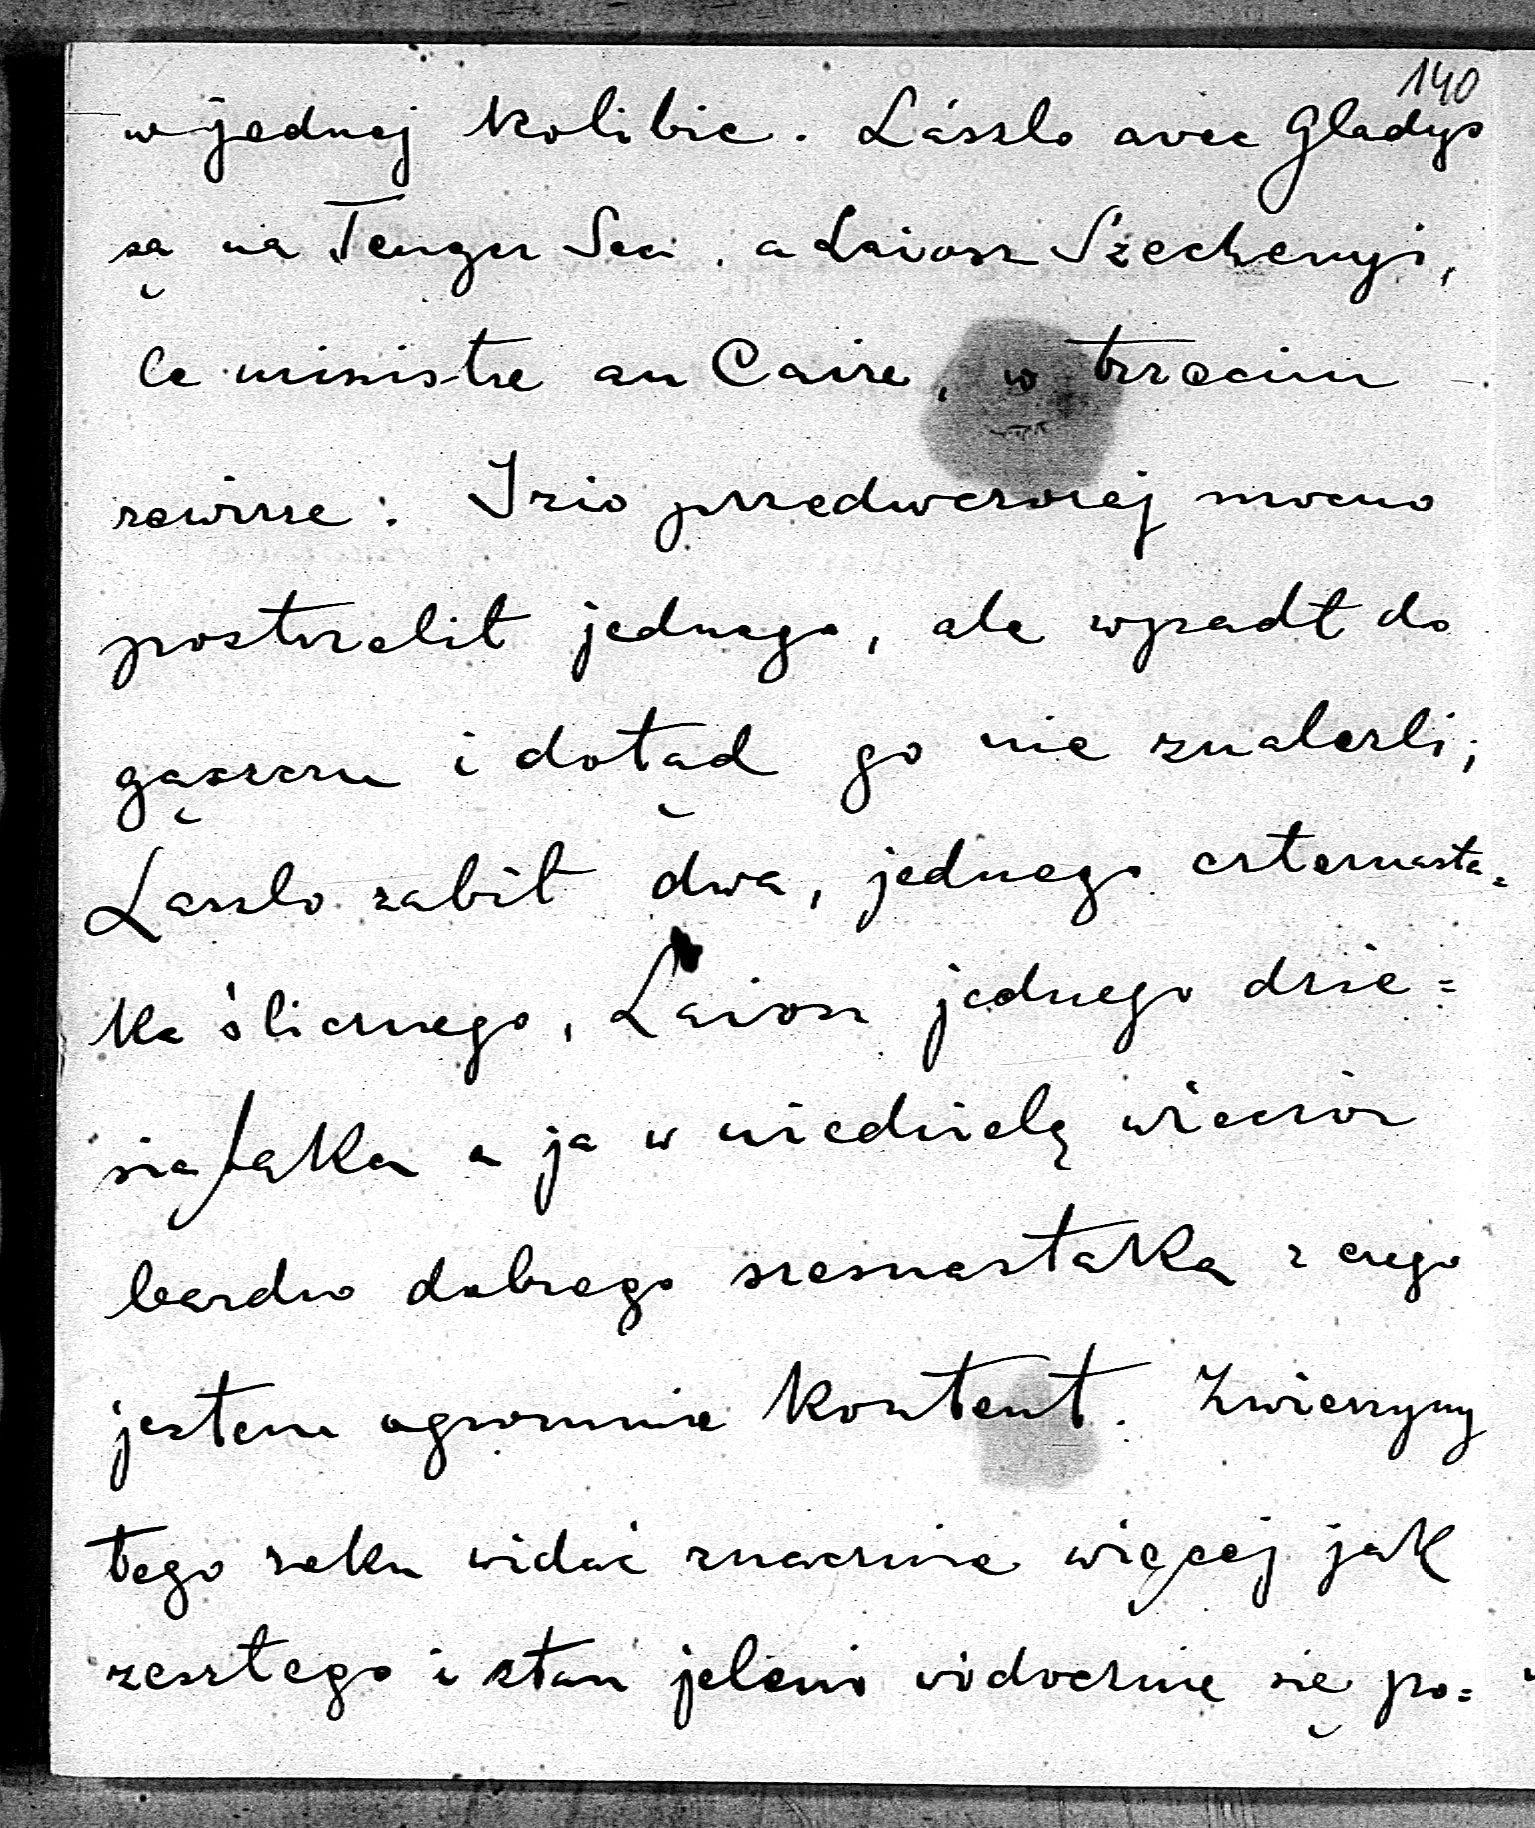 140
w jednej kolibie. László avec Gladys
są na Tenger Sea, a Laiosz Széchenyi,
le ministre au Caire, w trzecim
rewirze. Izio przedwczoraj mocno
postrzelił jednego, ale wpadł do
gąszczu i dotąd go nie znalezli;
Laszlo zabił dwa, jednego czternasta=
ka ślicznego, Laiosz jednego dzie=
siątaka a ja w niedzielę wieczór
bardzo dobrego szesnastaka z czego
jestem ogromnie kontent. Zwierzyny
tego roku widać znacznie więcej jak
zeszłego i stan jeleni widocznie się po=